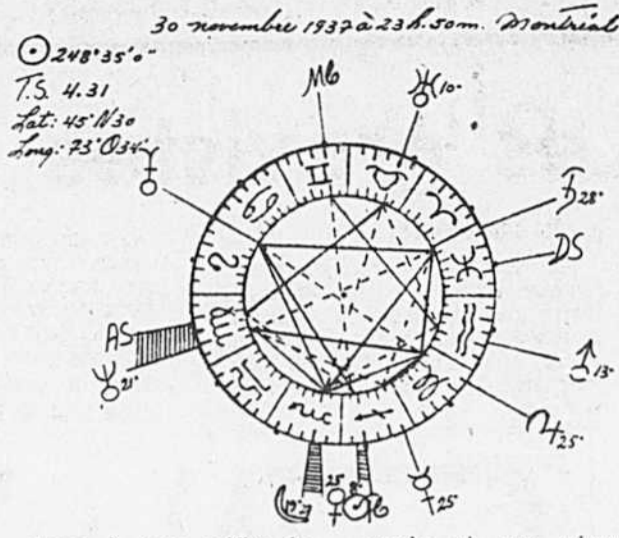 30 novembre 1937 à 23h.50m. Montréal
☉ 248°35'0"
T.S. 4.31
Lat: 45°N30
Long: 73°O34'
Mc
♅10°
♄28°
DS
♂13°
♃25°
☿25°
♀25°
☉8°
AS
♆21°